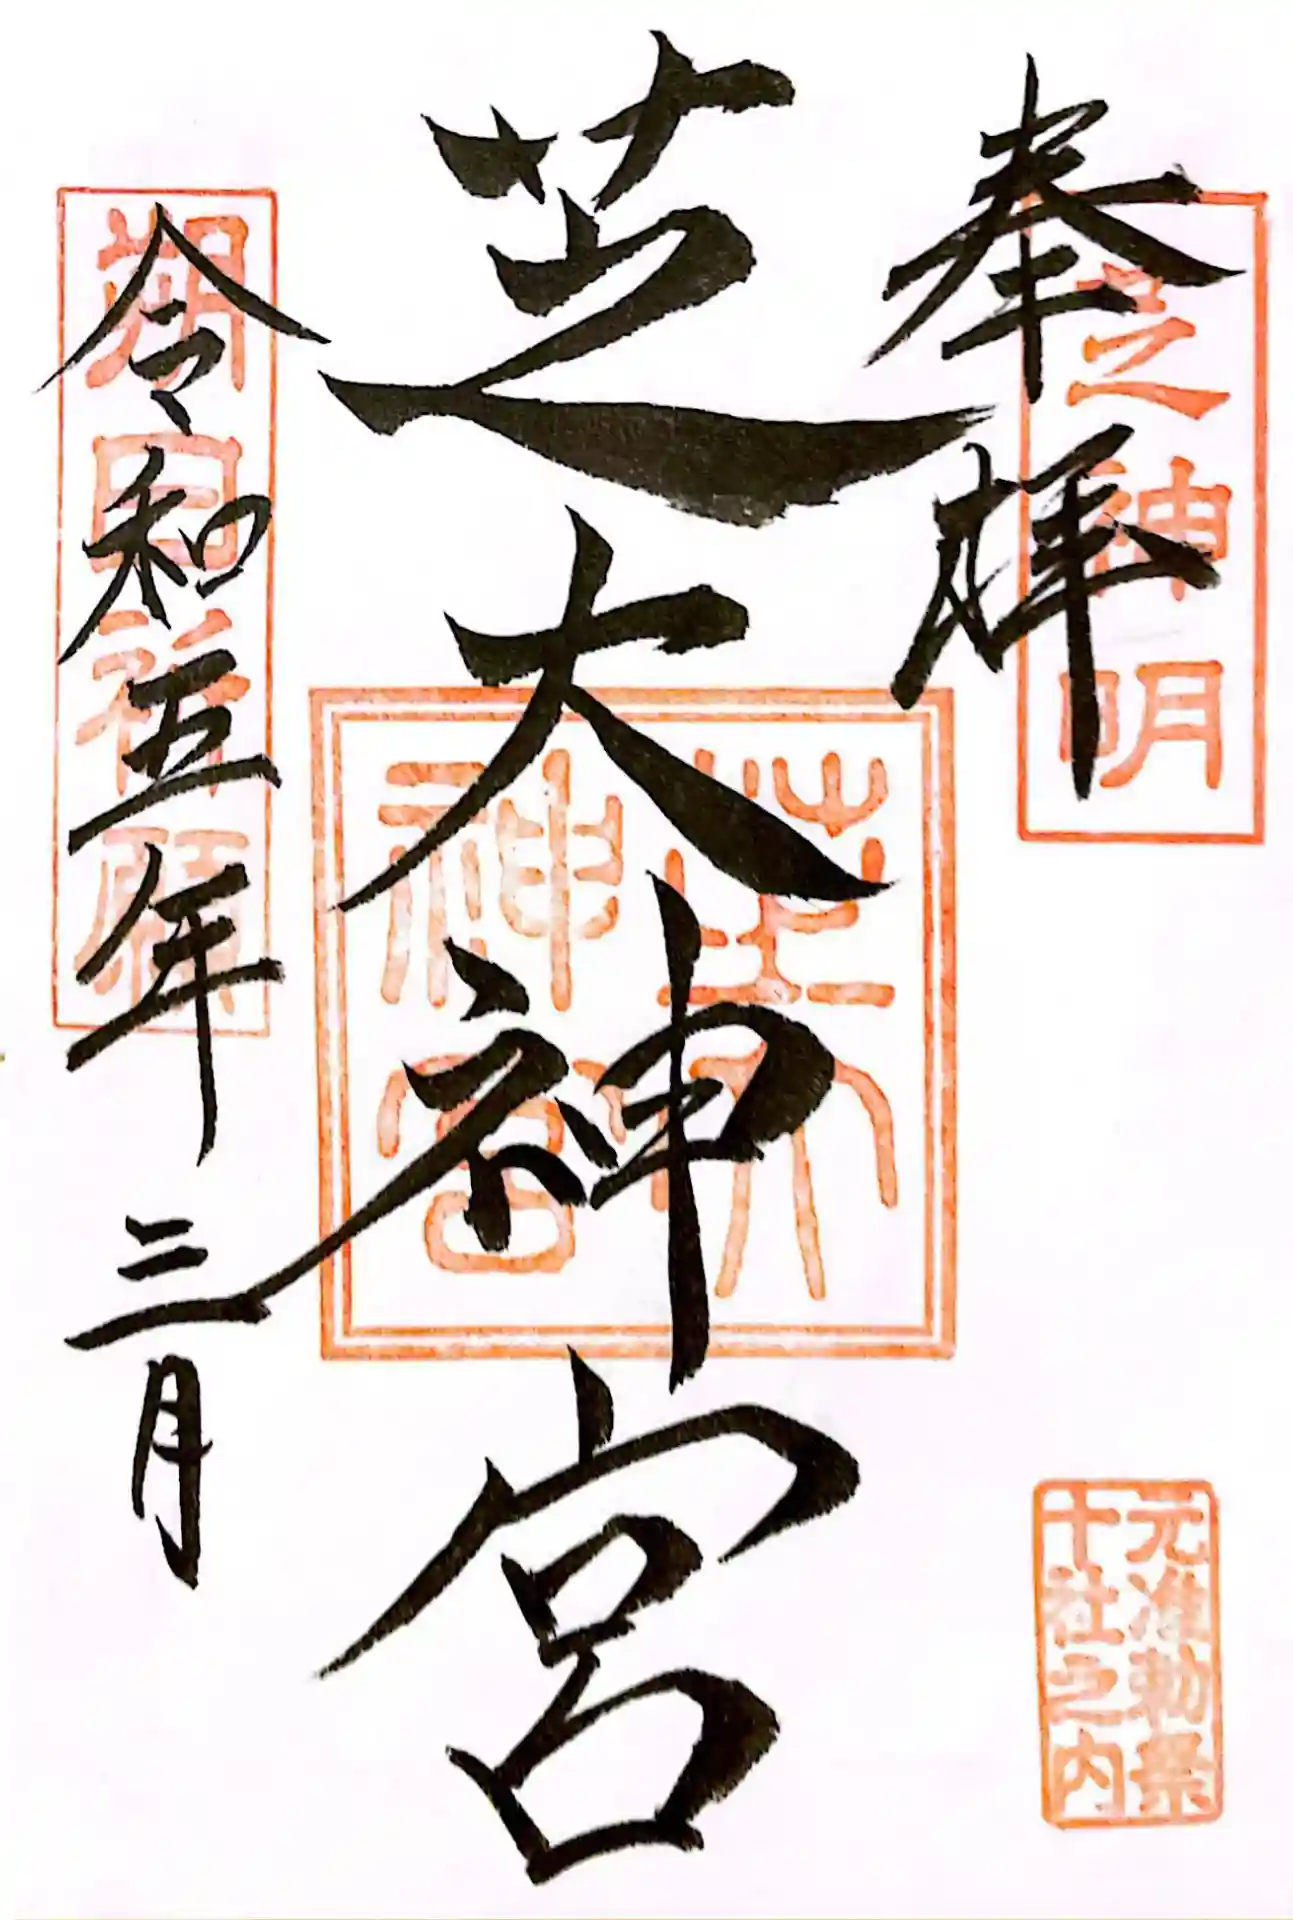 奉拝
芝神明
芝大神宮
芝大
神宮
令和五年三月
朔日祈願
元准勅祭
十社之内